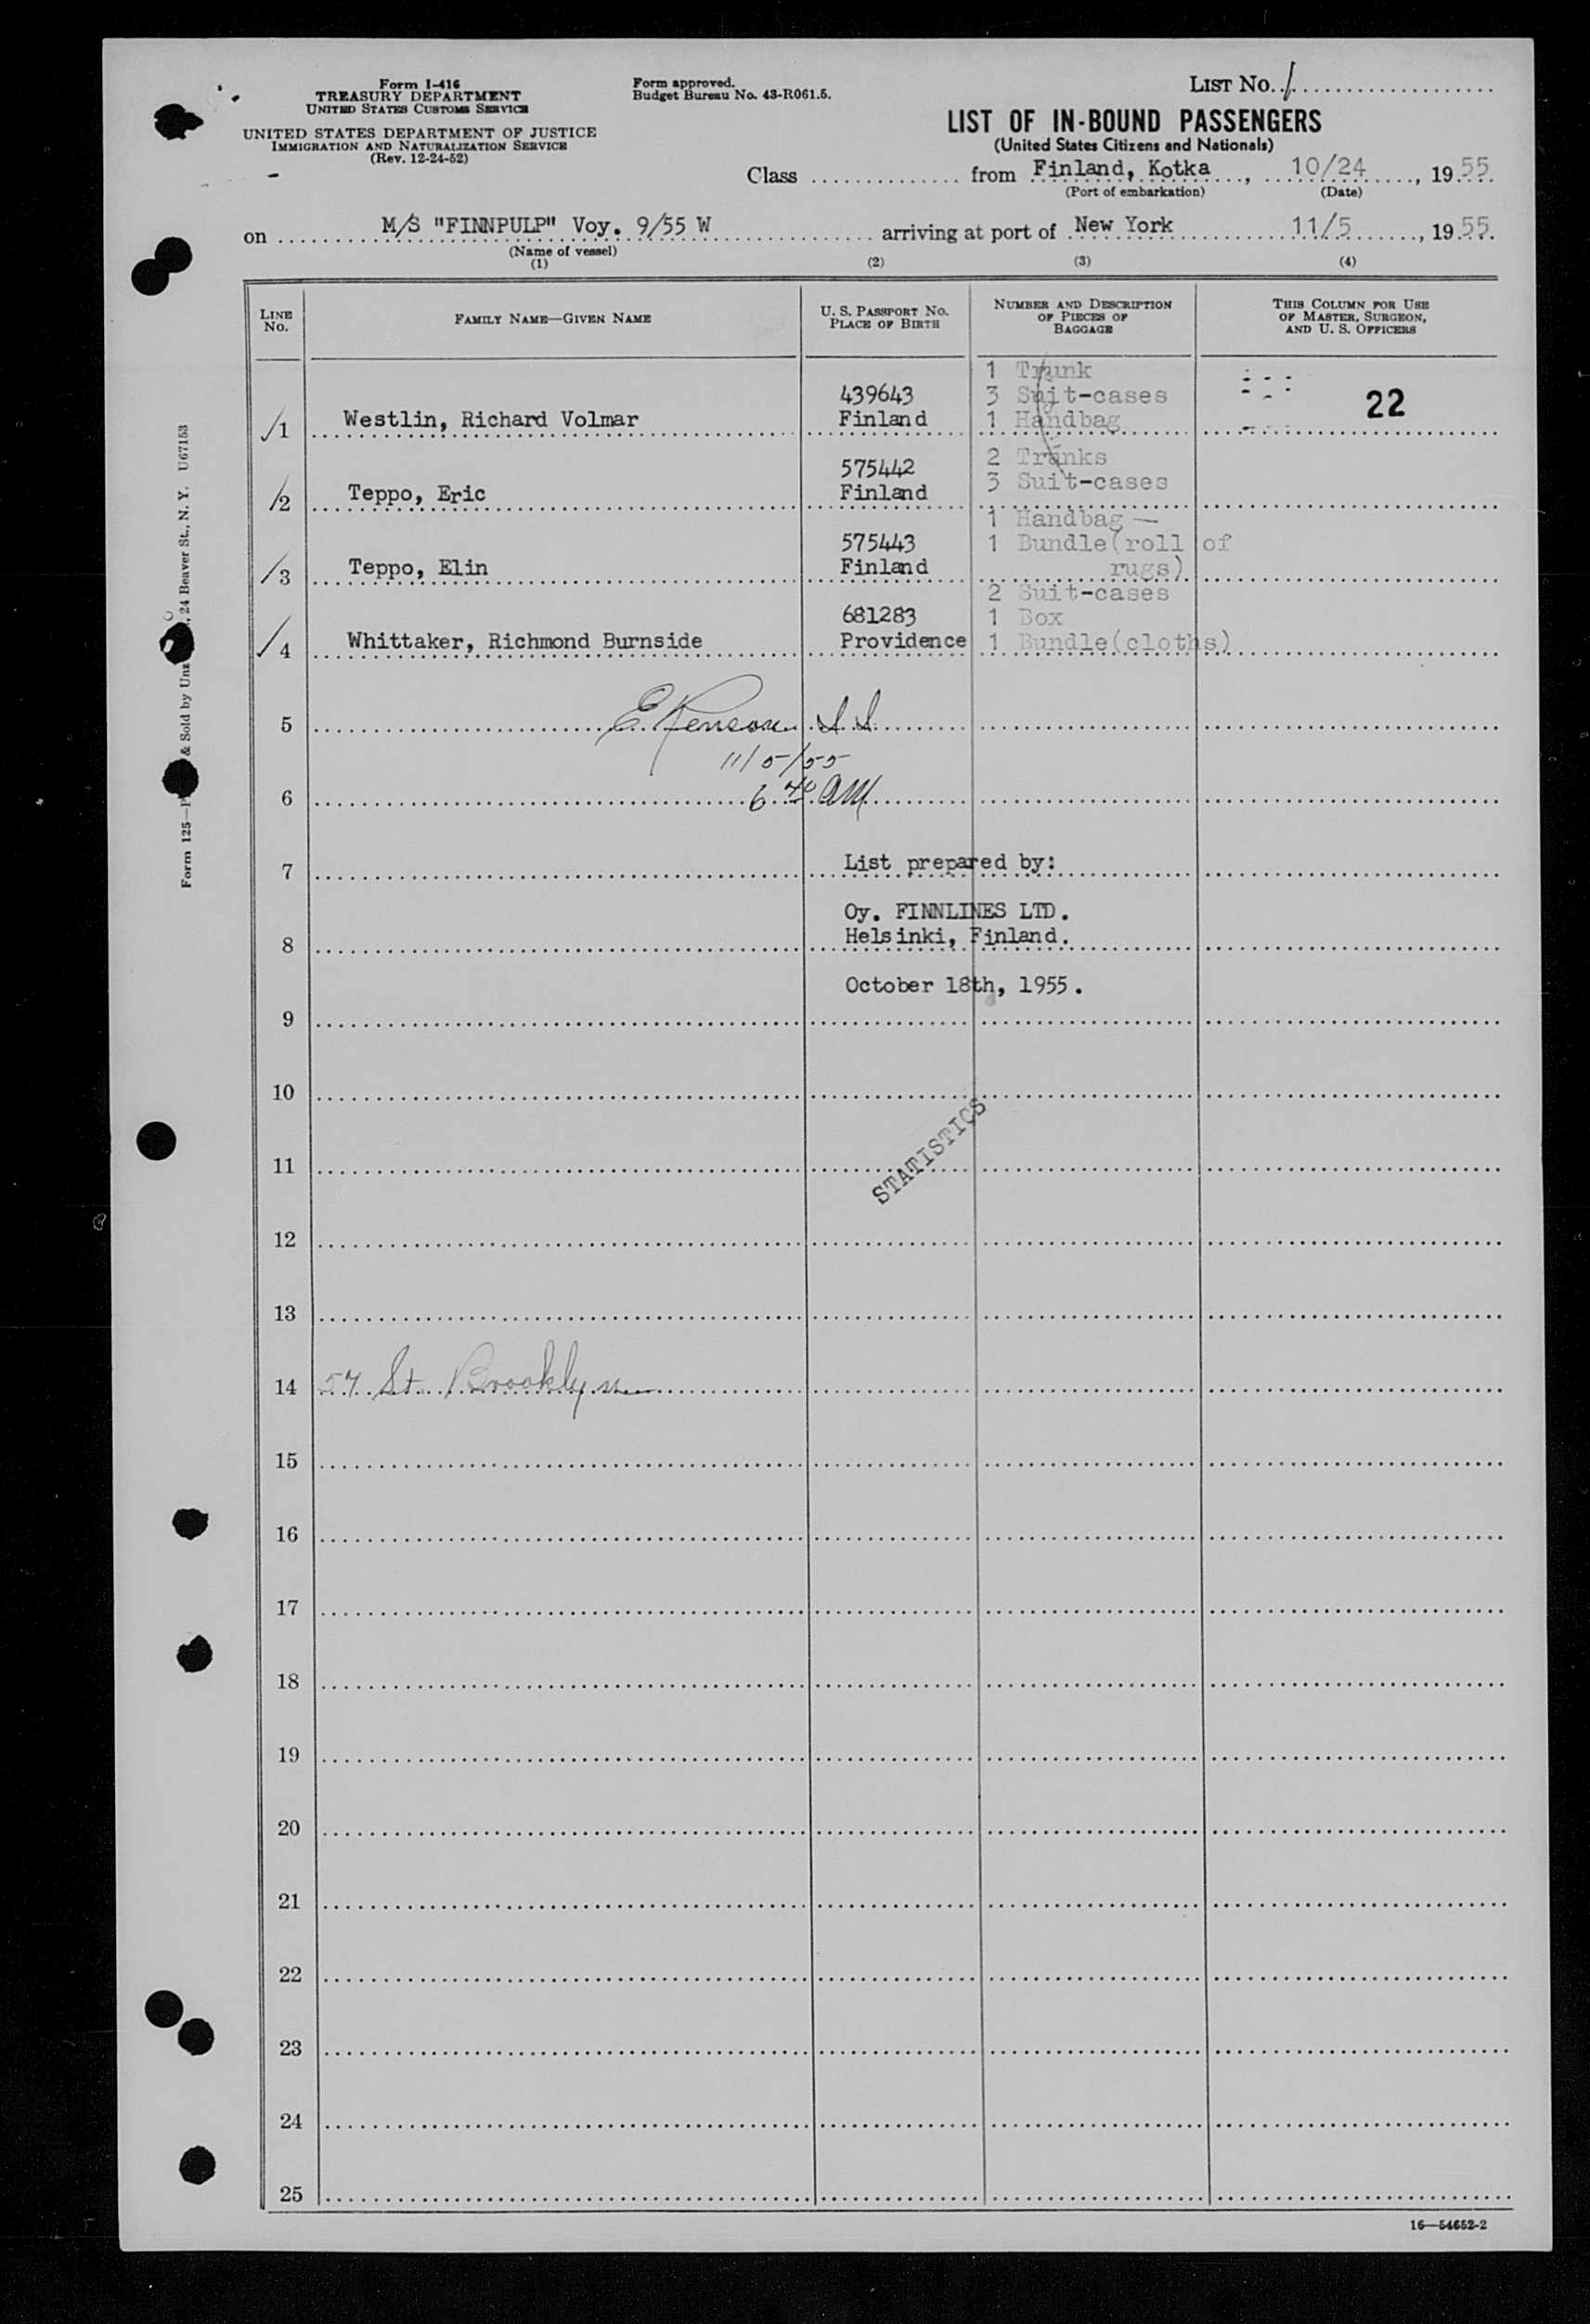 Form I-416
TREASURY DEPARTMENT
UNITED STATES CUSTOMS SERVICE
UNITED STATES DEPARTMENT OF JUSTICE
IMMIGRATION AND NATURALIZATION SERVICE
(Rev. 12-24-52)
Form approved.
Budget Bureau No. 43-R061.5.
LIST NO. 1
LIST OF IN-BOUND PASSENGERS
(United States Citizens and Nationals)
Class from Finland, Kotka, 10/24, 1955.
(Port of embarkation) (Date)
on M/S "FINNPULP" Voy. 9/55 W arriving at port of New York 11/5, 1955.
(Name of vessel)
(1) (2) (3) (4)
LINE NO. FAMILY NAME—GIVEN NAME U. S. PASSPORT NO. PLACE OF BIRTH NUMBER AND DESCRIPTION OF PIECES OF BAGGAGE THIS COLUMN FOR USE OF MASTER, SURGEON, AND U. S. OFFICERS
1 Trunk
439643 3 Suit-cases 22
1 Westlin, Richard Volmar Finland 1 Handbag
575442 2 Trunks
2 Teppo, Eric Finland 3 Suit-cases
1 Handbag —
575443 1 Bundle(roll of
3 Teppo, Elin Finland rugs)
2 Suit-cases
681283 1 Box
4 Whittaker, Richmond Burnside Providence 1 Bundle(cloths)
5
11/5/55
6 6 40 AM
7 List prepared by:
Oy. FINNLINES LTD.
8 Helsinki, Finland.
October 18th, 1955.
9
10
STATISTICS
11
12
13
14 57 St. Brooklyn
15
16
17
18
19
20
21
22
23
24
25
16—54652-2
Form 125—P & Sold by Unz 24 Beaver St., N. Y. U67153